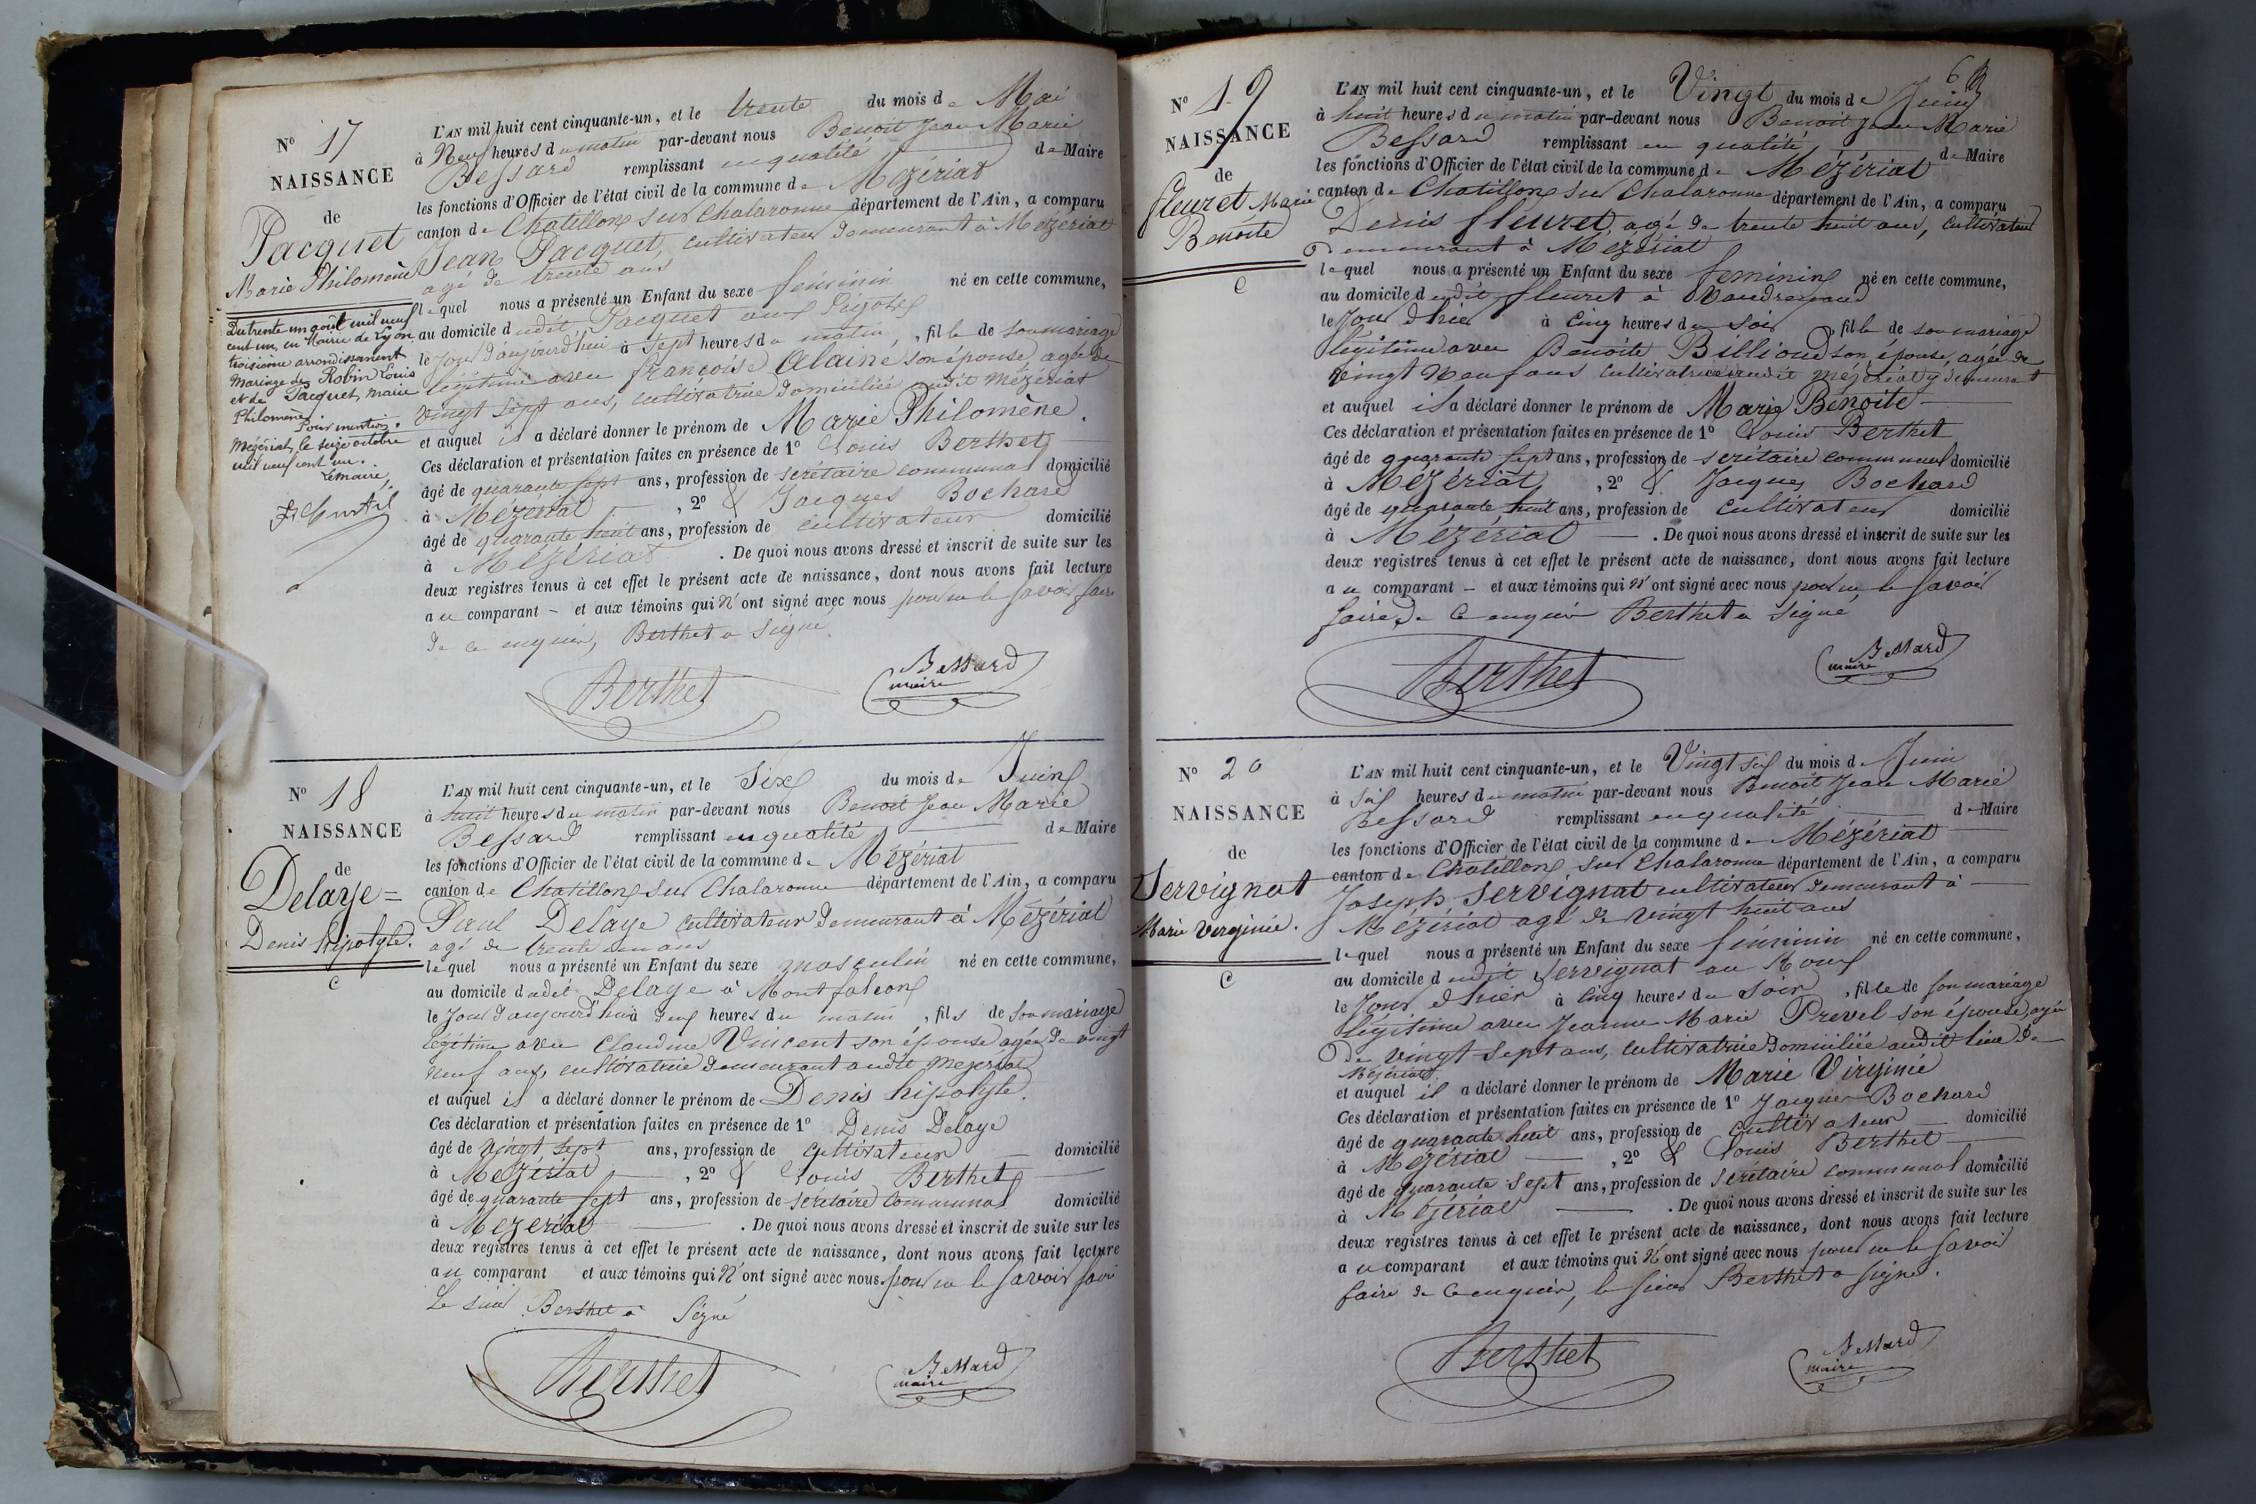 N° 17
NAISSANCE
de
Pacquet
Marie Philomène
Du trente un août mil neuf
cent un, en Mairie de Lyon
troisième arrondissement
Mariage de Robin Louis
et de Pacquet, marie
Philomène.
Pour mention.
Mézériat, le seize octobre
mil neuf cent un.
Le maire,
L'AN mil huit cent cinquante-un, et le trente du mois de Mai
à Neuf heures du matin par-devant nous Benoit Jean Marie
Bessard remplissant en qualité de Maire
les fonctions d'Officier de l'état civil de la commune de Mézériat
canton de Chatillon sur Chalaronne département de l'Ain, a comparu
Jean Pacquet, cultivateur demeurant à Mézériat
agé de trente ans
lequel nous a présenté un Enfant du sexe féminin né en cette commune,
au domicile dudit Pacquet aux Pigotes
le Jour d'aujourd'hui à sept heures du matin, fille de son mariage
légitime avec françoise Alaine son épouse, agée de
vingt sept ans, cultivatrice domiciliée audit Mézériat
et auquel il a déclaré donner le prénom de Marie Philomène.
Ces déclaration et présentation faites en présence de 1° Louis Berthet
âgé de quarante sept ans, profession de secrétaire communal domicilié
à Mézériat, 2° & Jacques Bochard
âgé de quarante huit ans, profession de cultivateur domicilié
à Mézériat. De quoi nous avons dressé et inscrit de suite sur les
deux registres tenus à cet effet le présent acte de naissance, dont nous avons fait lecture
au comparant - et aux témoins qui n'ont signé avec nous pour ne le savoir faire
de ce enquis, Berthet a signé
Berthet
Bessard
maire
N° 18
NAISSANCE
de
Delaye=
Denis hipolyte.
C
L'AN mil huit cent cinquante-un, et le Six du mois de Juin
à huit heures du matin par-devant nous Benoit Jean Marie
Bessard remplissant en qualité de Maire
les fonctions d'Officier de l'état civil de la commune de Mézériat
canton de Chatillon sur Chalaronne département de l'Ain, a comparu
Paul Delaye cultivateur demeurant à Mézériat
agé de trente un ans
lequel nous a présenté un Enfant du sexe masculin né en cette commune,
au domicile dudit Delaye à Montfalcon
le Jour d'aujourd'hui à deux heures du matin, fils de son mariage
légitime avec Claudine Vincent son épouse agée de vingt
neuf ans, cultivatrice demeurant audit Mezériat
et auquel il a déclaré donner le prénom de Denis hipolyte.
Ces déclaration et présentation faites en présence de 1° Denis Delaye
âgé de vingt sept ans, profession de cultivateur domicilié
à Mézériat, 2° & Louis Berthet
âgé de quarante sept ans, profession de secrétaire communal domicilié
à Mezeriat. De quoi nous avons dressé et inscrit de suite sur les
deux registres tenus à cet effet le présent acte de naissance, dont nous avons fait lecture
au comparant et aux témoins qui n'ont signé avec nous pour ne le savoir faire
Le sieur Berthet a Signé
Berthet
Bessard
maire
6
N° 19
NAISSANCE
de
fleuret Marie
Benoite
C
L'AN mil huit cent cinquante-un, et le Vingt du mois de Juin
à huit heures du matin par-devant nous Benoit Jean Marie
Bessard remplissant en qualité de Maire
les fonctions d'Officier de l'état civil de la commune de Mézériat
canton de Chatillon sur Chalaronne département de l'Ain, a comparu
Denis fleuret, agé de trente huit ans, cultivateur
Demeurant à Mézériat
lequel nous a présenté un Enfant du sexe feminin né en cette commune,
au domicile dudit fleuret à
le Jour d'hier à Cinq heures du soir, fille de son mariage
légitime avec Benoite Billioud son épouse, agée de
vingt Neuf ans cultivatrice audit Mézériat y demeurant
et auquel il a déclaré donner le prénom de Marie Bénoite
Ces déclaration et présentation faites en présence de 1° Louis Berthet
âgé de quarante sept ans, profession de secrétaire communal domicilié
à Mézériat, 2° & Jacques Bochard
âgé de quarante huit ans, profession de cultivateur domicilié
à Mézériat. De quoi nous avons dressé et inscrit de suite sur les
deux registres tenus à cet effet le présent acte de naissance, dont nous avons fait lecture
au comparant - et aux témoins qui n'ont signé avec nous pour ne le savoir
faire de ce enquis Berthet a signé
Berthet
Bessard
maire
N° 20
NAISSANCE
de
Servignat
Marie Verginie.
C
L'AN mil huit cent cinquante-un, et le Vingt six du mois de Juin
à six heures du matin par-devant nous Benoit Jean Marie
Bessard remplissant en qualité de Maire
les fonctions d'Officier de l'état civil de la commune de Mézériat
canton de Chatillon sur Chalaronne département de l'Ain, a comparu
Joseph Servignat cultivateur demeurant à
Mézériat agé de vingt huit ans
lequel nous a présenté un Enfant du sexe féminin né en cette commune,
au domicile dudit Servignat au
le Jour d'hier à Cinq heures du Soir, fille de son mariage
légitime avec Jeanne Marie Prevel son épouse, agée
De vingt Sept ans, cultivatrice domiciliée audit lieu de
Mézériat.
et auquel il a déclaré donner le prénom de Marie Virginie
Ces déclaration et présentation faites en présence de 1° Jacques Bochard
âgé de quarante huit ans, profession de cultivateur domicilié
à Mézériat, 2° & Louis Berthet
âgé de quarante sept ans, profession de secrétaire communal domicilié
à Mézériat. De quoi nous avons dressé et inscrit de suite sur les
deux registres tenus à cet effet le présent acte de naissance, dont nous avons fait lecture
au comparant et aux témoins qui n'ont signé avec nous pour ne le savoir
faire de ce enquis, le sieur Berthet a signé.
Berthet
Bessard
maire